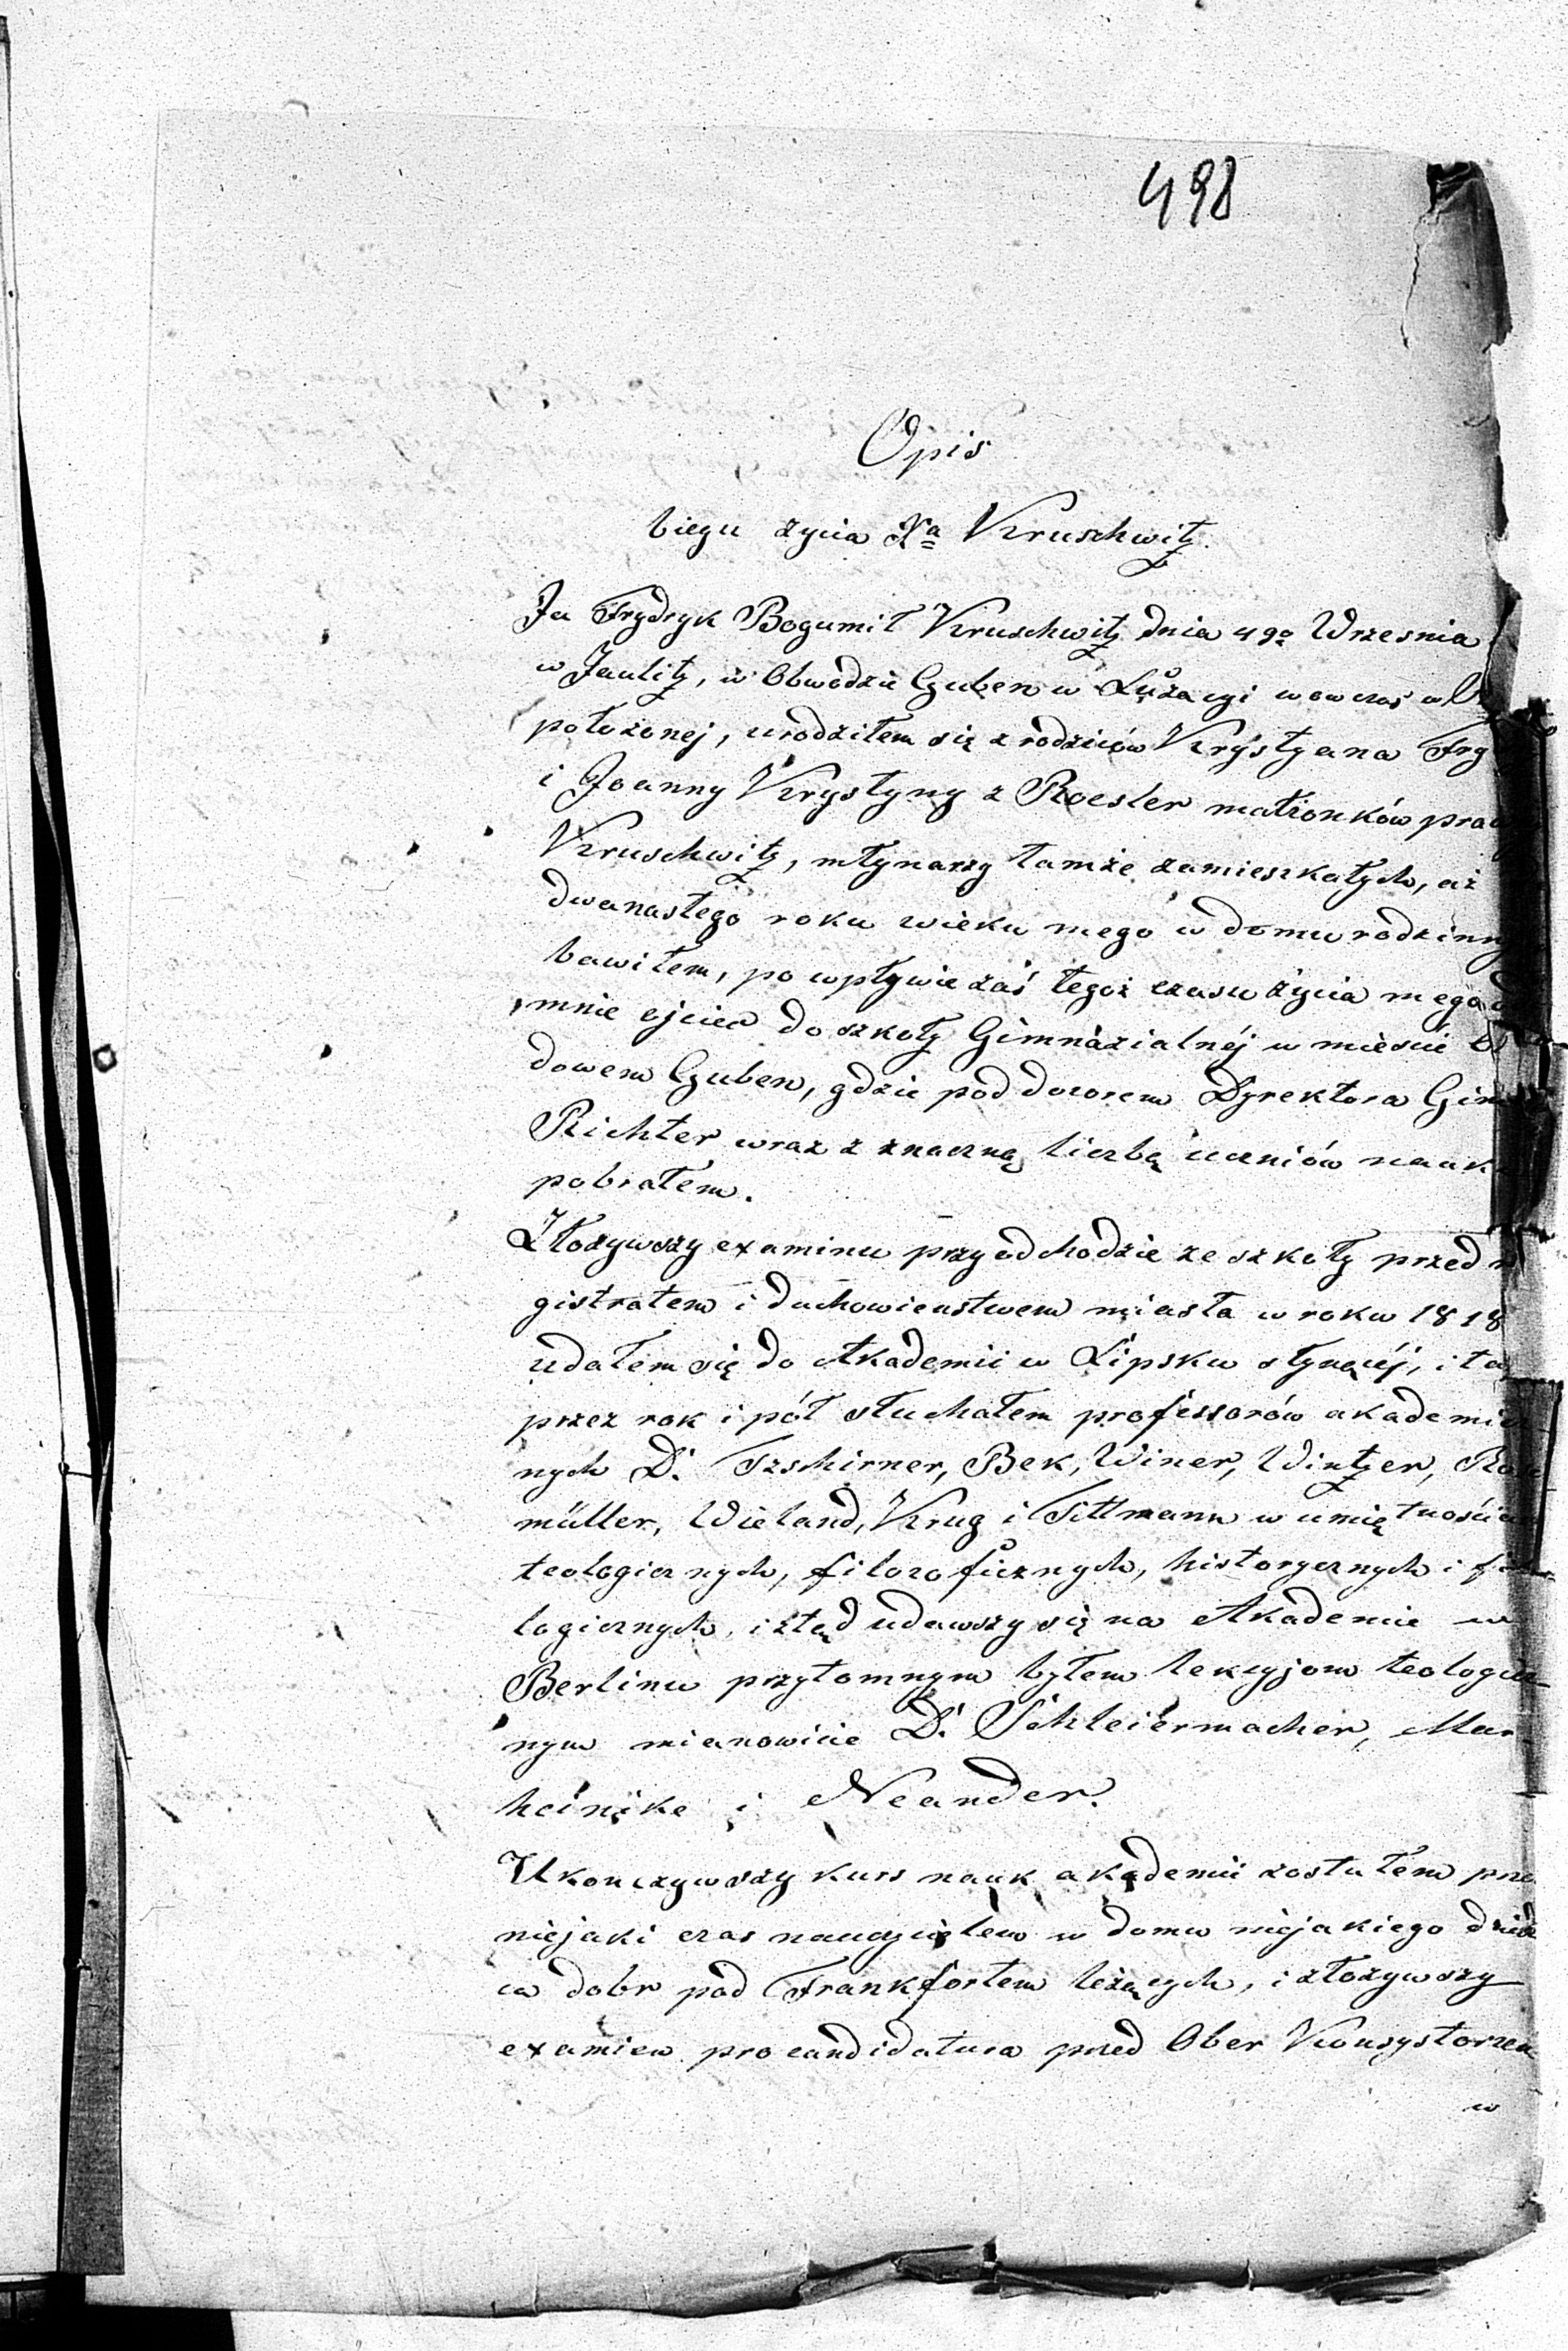 498
Opis
biegu życia Xa Kruschwitz
Ja Frydryk Bogumił Kruschwitz dnia 19o Wrzesnia
w Jaulitz, w Obwodzie Guben w Luzacyi wowczas w
położonej, urodziłem się z rodziców Krystyana
i Joanny Krystyny z Roesler małżonków
Kruschwitz, młynarzy tamże zamieszkałych, aż
dwunastego roku wieku mego w domu
bawiłem, po wpływie zaś tegoż czasu życia mego
mnie ojciec do szkoły Gimnazialnéj w mieście
dowem Guben, gdzie pod dozorem Dyrektora
Richter wraz z znaczną liczbą uczniów
pobrałem.
Złożywszy examinu przy odchodzie ze szkoły przed
gistratem i duchowieństwem miasta w roku 1818
udałem się do Akademii w Lipsku słynącéj, i
przez rok i pół słuchałem professorów
nych D. Tzschirner, Bek, Winer, Wintzer,
müller, Wieland, Krug i Tittmann w
teologicznych, filozoficznych, historycznych i
logicznych, i ztąd udawszy się na Akademie w
Berlinu przytomnym byłem lekcyjom teologicz
nym mianowicie D. Schleiermacher, Mar
heinike i Neander.
Ukonczywszy kurs nauk akademii zostałem
niejaki czas nauczycielem w domu niejakiego
ca dobr pod Frankfortem leżących, i złożywszy
examien pro candidatura przed Ober Konsystorzem
w